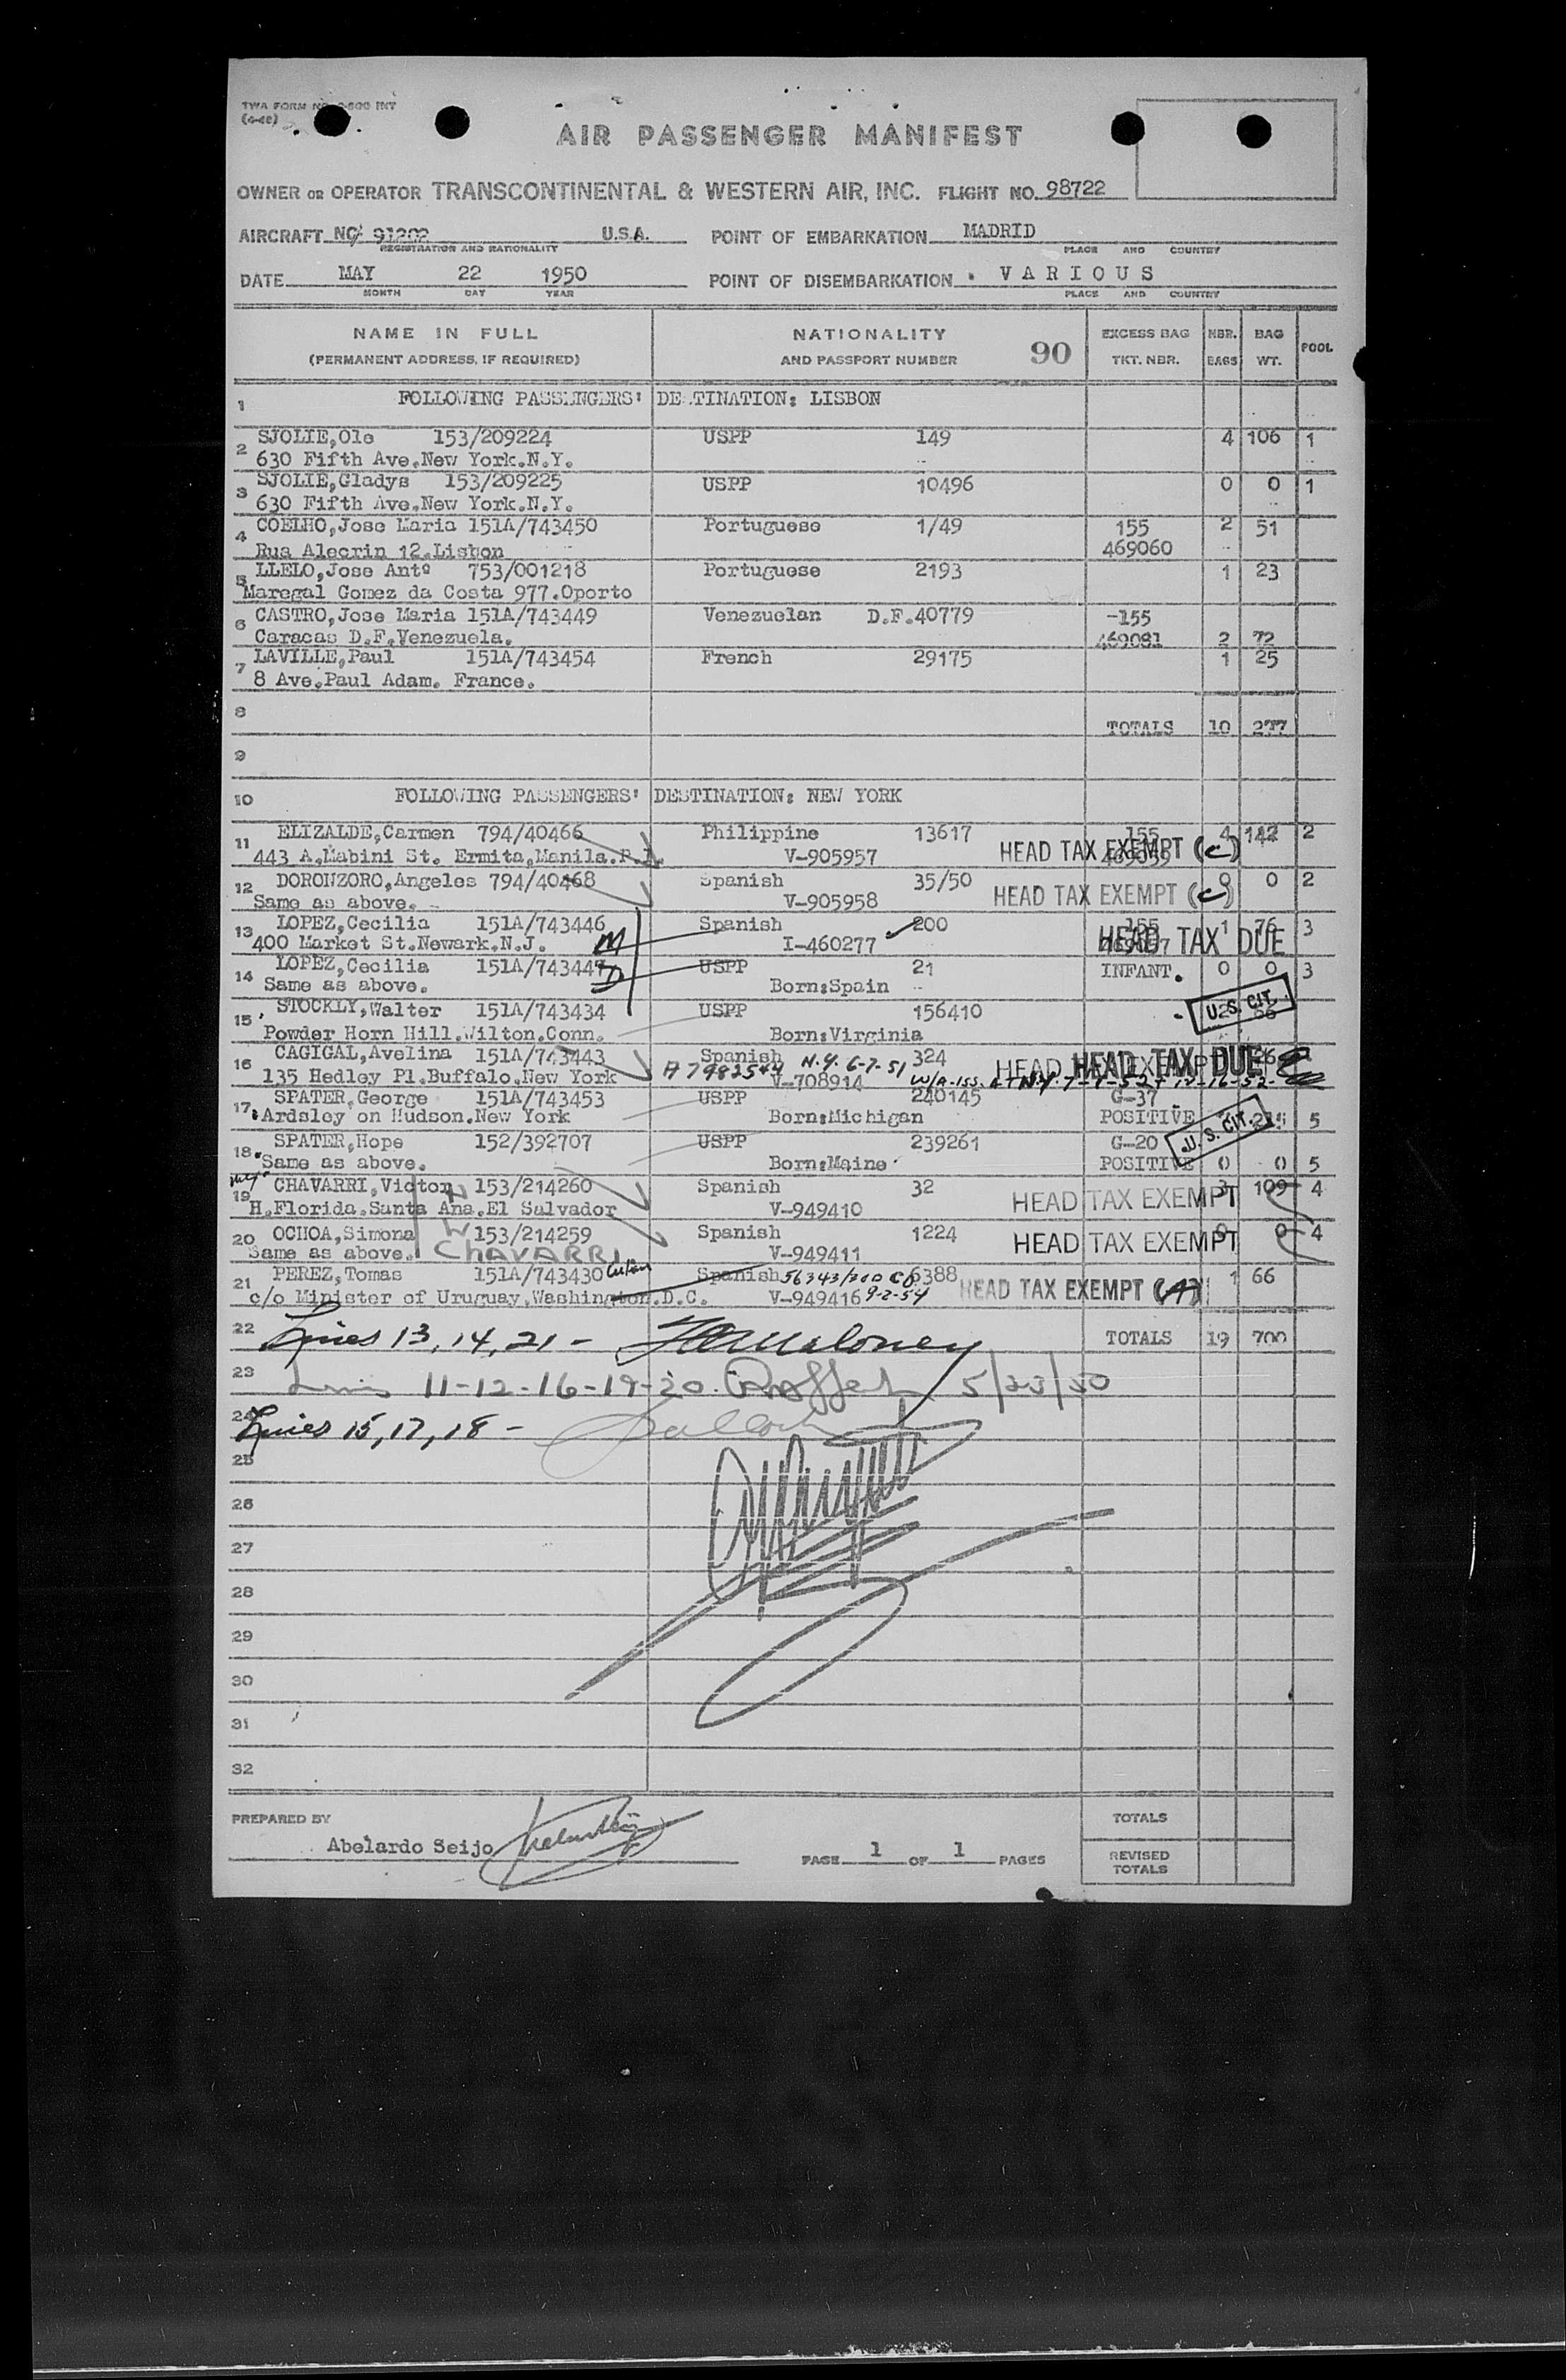 TWA FORM NO. INT
AIR PASSENGER MANIFEST
OWNER OR OPERATOR TRANSCONTINENTAL & WESTERN AIR, INC. FLIGHT NO. 98722
AIRCRAFT NC 91202 U.S.A. POINT OF EMBARKATION MADRID
REGISTRATION AND NATIONALITY PLACE AND COUNTRY
DATE MAY 22 1950 POINT OF DISEMBARKATION . VARIOUS
MONTH DAY YEAR PLACE AND COUNTRY
NAME IN FULL NATIONALITY EXCESS BAG NBR. BAG POOL
(PERMANENT ADDRESS, IF REQUIRED) AND PASSPORT NUMBER 90 TKT. NBR. BAGS WT.
1 FOLLOWING PASSENGERS: DESTINATION: LISBON
2 SJOLIE,Ole 153/209224 USPP 149 4 106 1
630 Fifth Ave.New York.N.Y.
3 SJOLIE,Gladys 153/209225 USPP 10496 0 0 1
630 Fifth Ave.New York.N.Y.
4 COELHO,Jose Maria 151A/743450 Portuguese 1/49 155 2 51
Rua Alecrin 12.Lisbon 469060
5 LLELO,Jose Antº 753/001218 Portuguese 2193 1 23
Maregal Gomez da Costa 977.Oporto
6 CASTRO,Jose Maria 151A/743449 Venezuelan D.F.40779 -155
Caracas D.F.Venezuela. 469081 2 72
7 LAVILLE,Paul 151A/743454 French 29175 1 25
8 Ave.Paul Adam. France.
8 TOTALS 10 277
9
10 FOLLOWING PASSENGERS: DESTINATION: NEW YORK
11 ELIZALDE,Carmen 794/40466 Philippine 13617 155 4 142 2
443 A.Mabini St. Ermita,Manila.P.I. V-905957 HEAD TAX EXEMPT (C)
12 DORONZORO,Angeles 794/40468 Spanish 35/50 0 0 2
Same as above. V-905958 HEAD TAX EXEMPT (C)
13 LOPEZ,Cecilia 151A/743446 Spanish 200 155 1 76 3
400 Market St.Newark.N.J. M I-460277 HEAD TAX DUE
14 LOPEZ,Cecilia 151A/743447 D USPP 21 INFANT. 0 0 3
Same as above. Born:Spain
15 STOCKLY,Walter 151A/743434 USPP 156410 U.S. CIT.
Powder Horn Hill.Wilton.Conn. Born:Virginia
16 CAGIGAL,Avelina 151A/743443 Spanish N.Y. 6-7-51 324 HEAD TAX DUE
135 Hedley Pl.Buffalo.New York A7982544 V-708914
17 SPATER,George 151A/743453 USPP 240145 G-37
Ardsley on Hudson.New York Born:Michigan POSITIVE U.S. CIT. 5
18 SPATER,Hope 152/392707 USPP 239261 G-20
Same as above. Born:Maine POSITIVE 0 0 5
19 CHAVARRI,Victor 153/214260 Spanish 32 3 109 4
H.Florida.Santa Ana.El Salvador V-949410 HEAD TAX EXEMPT
20 OCHOA,Simona W 153/214259 Spanish 1224 0 0 4
Same as above. CHAVARRI V-949411 HEAD TAX EXEMPT
21 PEREZ,Tomas 151A/743430 Spanish 56343/300 6388 HEAD TAX EXEMPT (A) 1 66
c/o Minister of Uruguay,Washington.D.C. V-949416 9-2-54
22 Lines 13, 14, 21 - Maloney TOTALS 19 700
23 Lines 11-12-16-19-20 5/23/50
24 Lines 15, 17, 18 -
25
26
27
28
29
30
31
32
PREPARED BY TOTALS
Abelardo Seijo PAGE 1 OF 1 PAGES REVISED
TOTALS